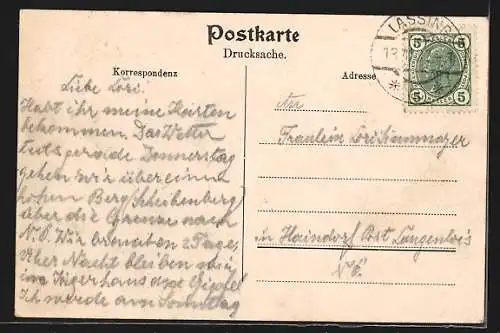 Postkarte
Drucksache.
Korrespondenz
Adresse
LASSING
5 5
5 5
Liebe Lori!
Habt ihr meine Karten
bekommen. Das Wetter
tuts gerade Donnerstag
gehen wir über einen
hohen Berg (Scheibenberg)
über die Grenze nach
N.Ö. Wir brauchen 2 Tage,
Über Nacht bleiben wir
im Jägerhaus am Gipfel
Ich werde am Sonntag
An
Fräulein Lori
in Haindorf Post Langenlois
N.Ö.